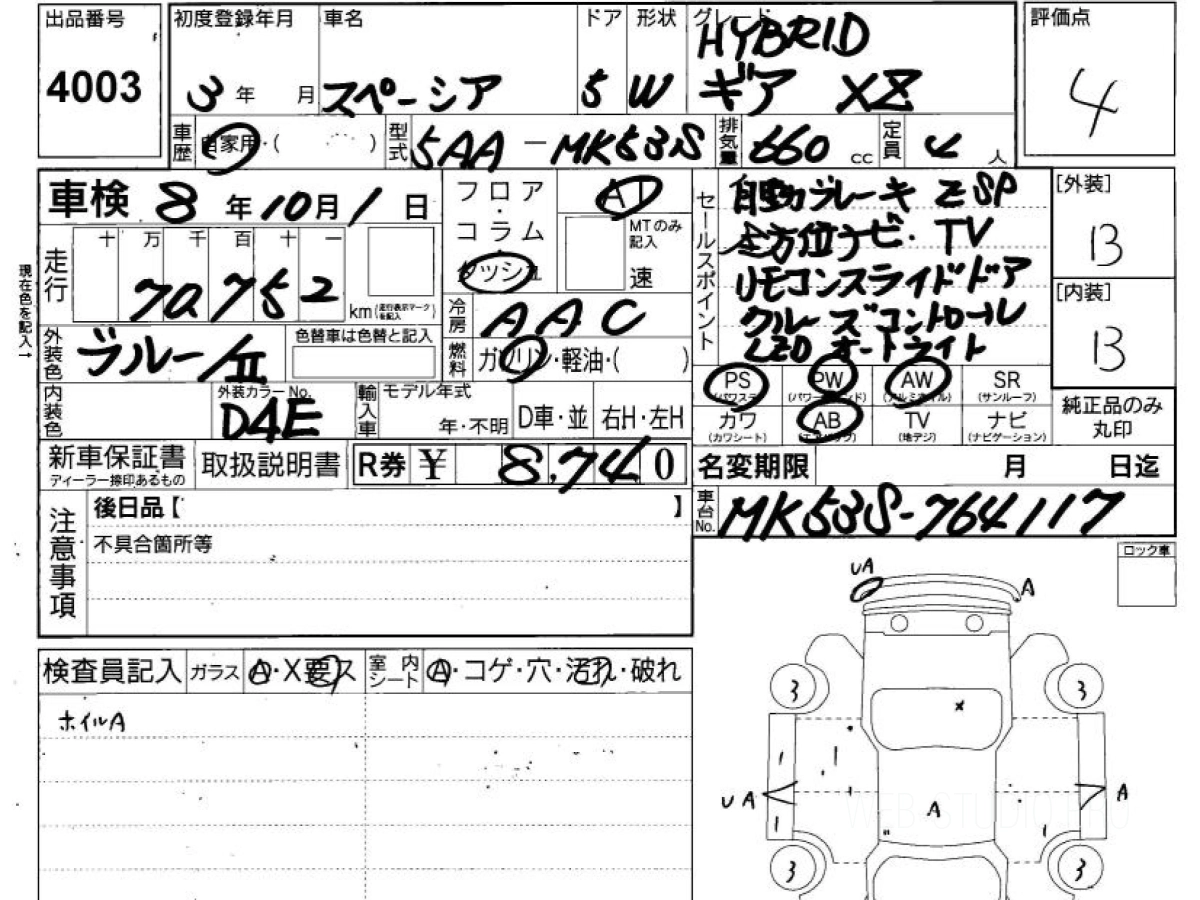 出品番号 初度登録年月 車名 ドア 形状 グレード 評価点
4003 3年 月 スペーシア 5 W HYBRID
ギア XZ 4
車歴 自家用・( ) 型式 5AA-MK53S 排気量 660 cc 定員 4 人
車検 8年10月1日
フロア・コラム ダッシュ AT
MTのみ記入 速
セールスポイント
自動ブレーキ Z SP
全方位ナビ・TV
リモコンスライドドア
クルーズコントロール
LEDオートライト
[外装]
B
[内装]
B
現在色を記入→
走行 十 万 千 百 十 一
70752 km (走行表示マークを記入)
冷房 AAC
外装色 ブルー/II 色替車は色替と記入
燃料 ガソリン・軽油・( )
PS (パワステ) PW (パワーウインド) AW (アルミホイル) SR (サンルーフ)
カワ (カワシート) AB (エアバッグ) TV (地デジ) ナビ (ナビゲーション)
純正品のみ丸印
内装色 外装カラーNo. D4E 輸入車 モデル年式 年・不明 D車・並 右H・左H
新車保証書 ディーラー捺印あるもの 取扱説明書 R券 ¥ 8,740
名変期限 月 日迄
車台No. MK53S-764117
注意事項
後日品【 】
不具合箇所等
ロック車
UA A
検査員記入 ガラス A・X要ス 室内シート A・コゲ・穴・汚れ・破れ
ホイルA
3 3
x
UA A A
WEB-STUDIO.PRO
3 3